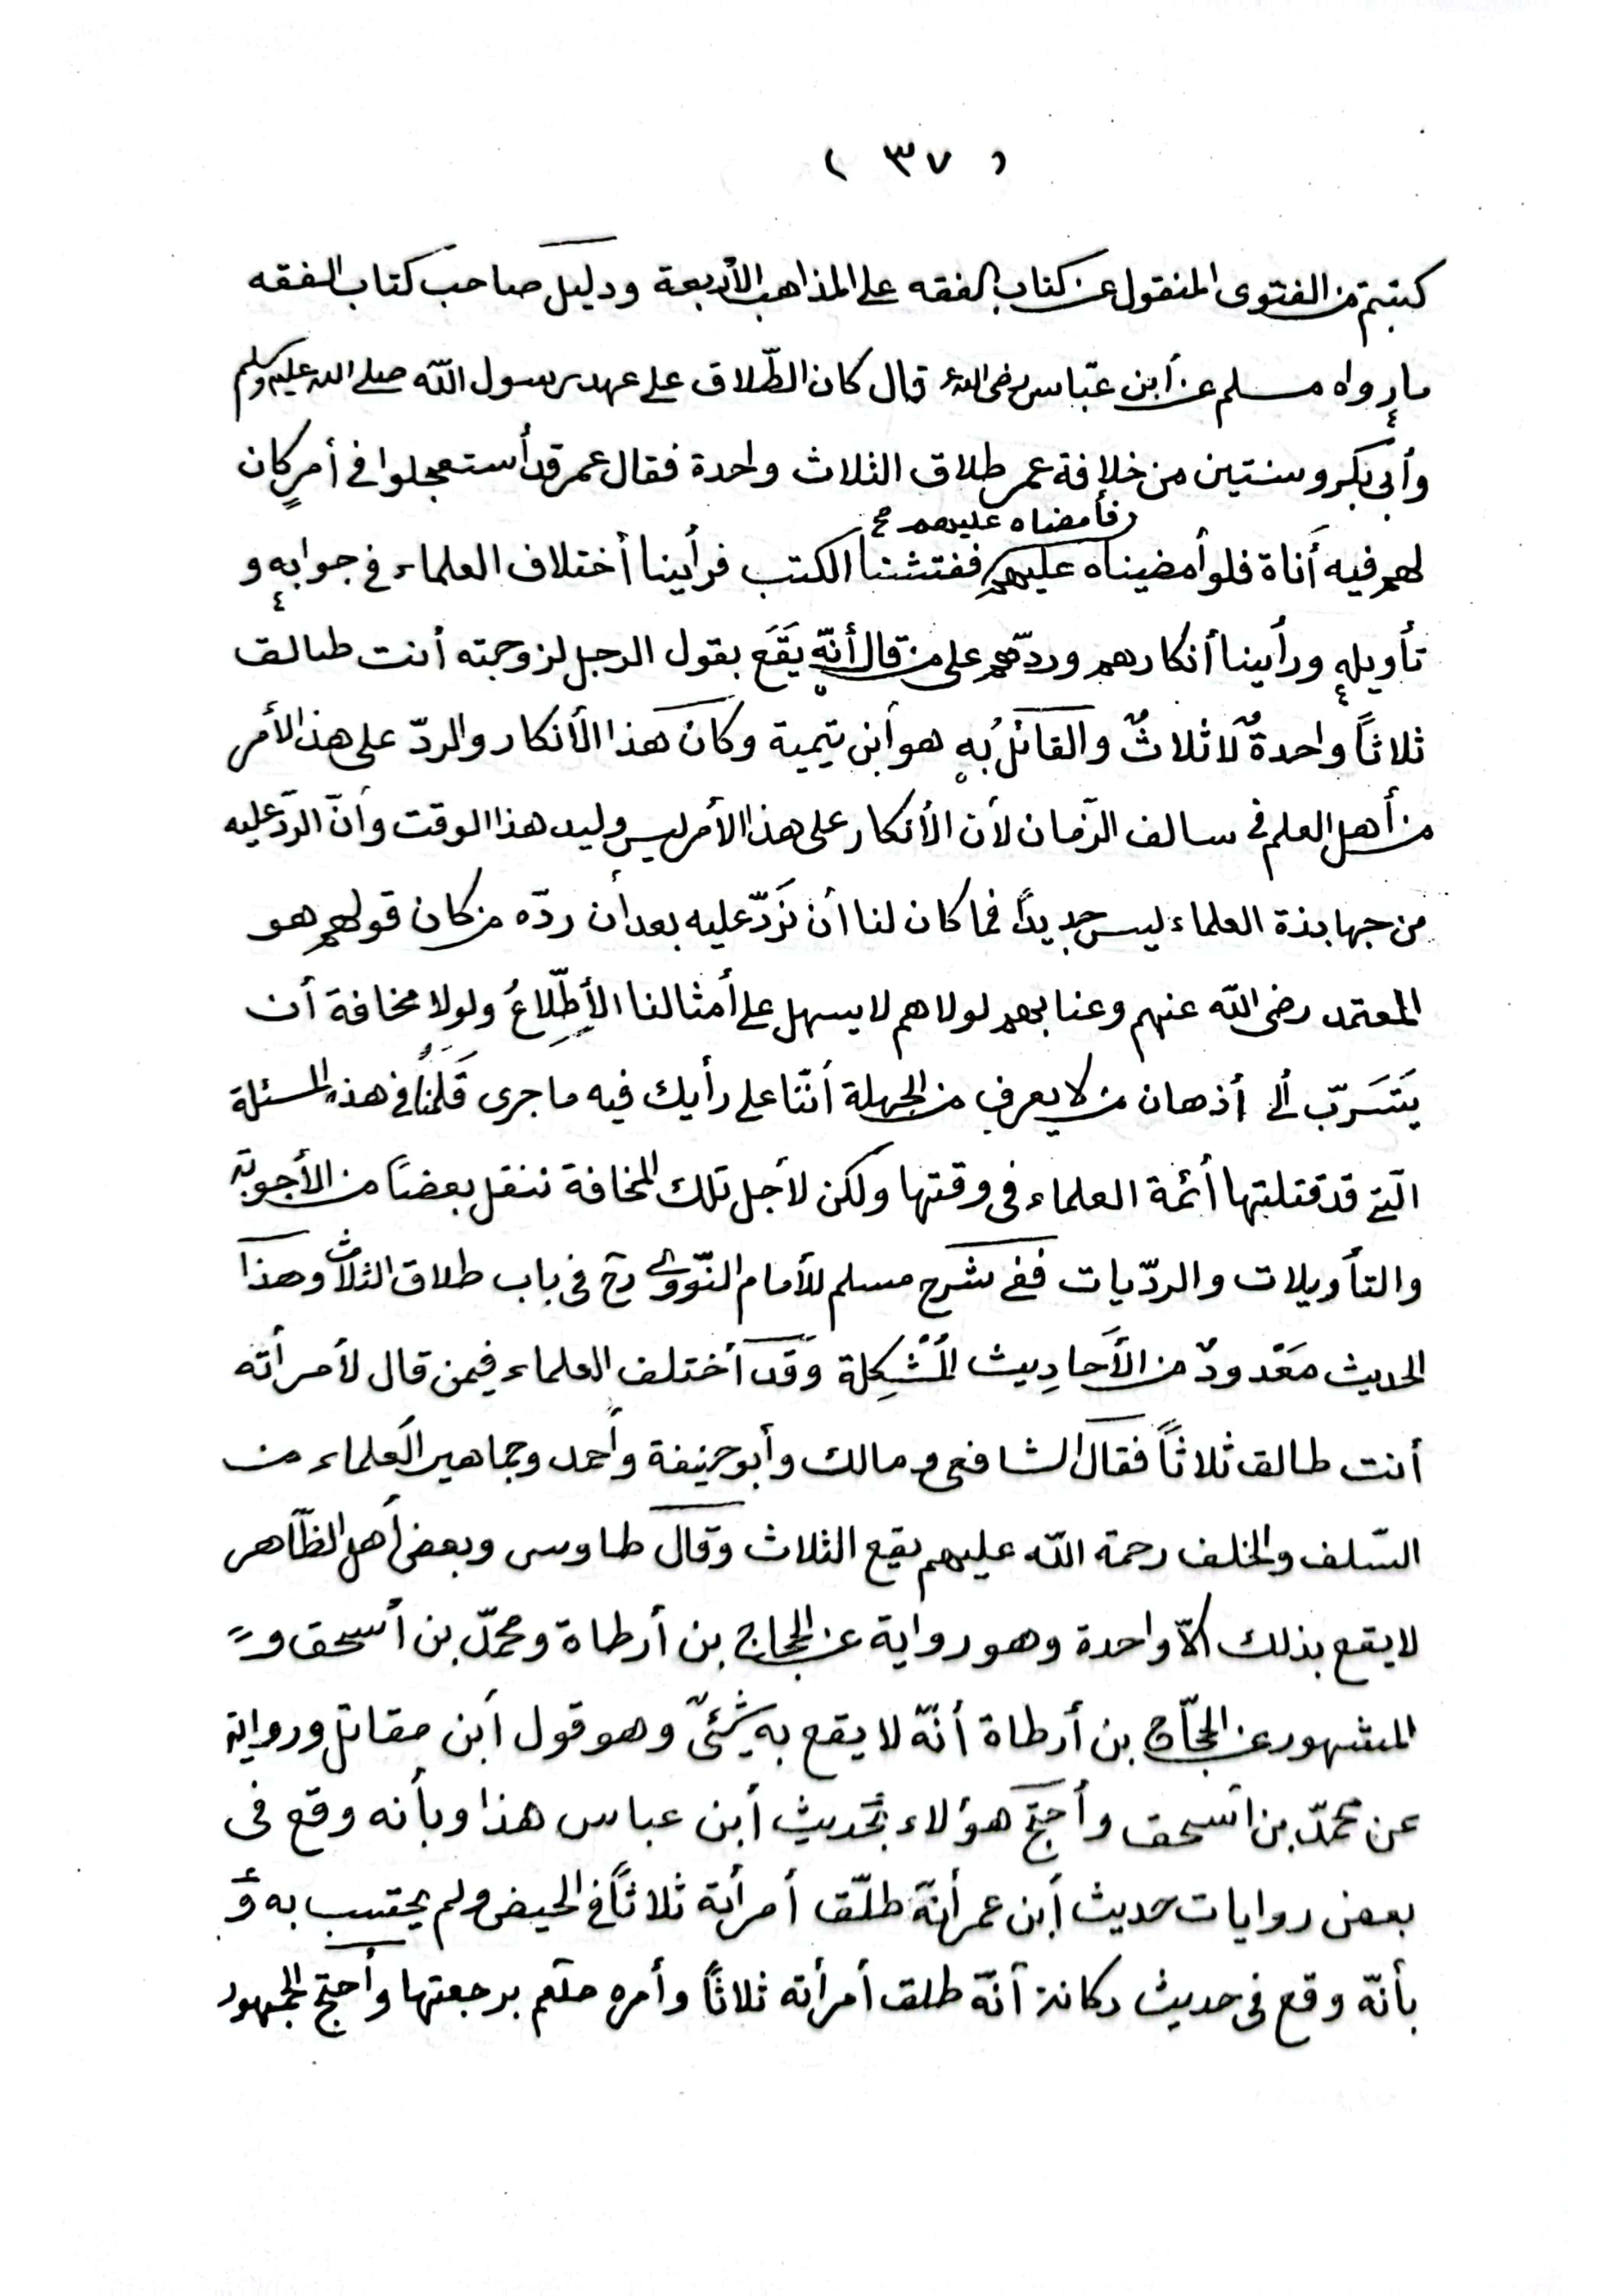 ( ٣٧ )
كتبتم من الفتوى المنقول عن كتاب الفقه على المذاهب الأربعة ودليل صاحب كتاب الفقه
ما رواه مسلم عن أبن عبّاس رضى الله قال كان الطّلاق على عهد رسول اللّه صلى الله عليه وسلم
وأبى بكر وسنتين من خلافة عمر طلاق الثلاث واحدة فقال عمر قد أستعجلوا فى أمرٍ كان
فأمضاه عليهم صح
لهم فيه أناة فلو أمضيناه عليهم ففتشنا الكتب فرأينا أختلاف العلماء فى جوابه و
تأويله ورأينا أنكارهم وردّهم على من قال أنّه يَقَع بقول الرجل لزوجته أنت طالق
ثلاثاً واحدةٌ لا ثلاثٌ والقائلُ به هو أبن تيمية وكان هذا الأنكار والردّ على هذا الأمر
من أهل العلم فى سالف الزّمان لأن الأنكار على هذا الأمر ليس وليد هذا الوقت وأنّ الردّ عليه
من جهابذة العلماء ليس جديداً فما كان لنا أن نَردّ عليه بعد أن ردّه من كان قولهم هو
المعتمد رضى اللّه عنهم وعنا بهم لولاهم لا يسهل على أمثالنا الأطِّلاعُ ولولا مخافة أن
يَتَسَرّب ألى أذهان من لا يعرف من الجهلة أنّنا على رأيك فيه ما جرى قَلَمُنا فى هذه المسئلة
الّتى قد قتلتها أئمة العلماء فى وقتها ولكن لأجل تلك المخافة ننقل بعضاً من الأجوبة
والتأويلات والردّيات ففى شرح مسلم للأمام النّووى رح فى باب طلاق الثلاث وهذا
الحديث مَعْدودٌ من الأَحادِيث المُشْكِلة وَقَد أختلف العلماء فيمن قال لأمرأته
أنت طالق ثلاثاً فقال الشافعى ومالك وأبو حنيفة وأحمد وجماهير العلماء من
السّلف والخلف رحمة اللّه عليهم يقع الثلاث وقال طاوس وبعض أهل الظّاهر
لا يقع بذلك الاّ واحدة وهو رواية عن الحجاج بن أرطاة ومحمّد بن أسحق و
المشهور عن الحجّاج بن أرطاة أنّه لا يقع به شئىٌ وهو قول أبن مقاتل ورواية
عن محمّد بن اسحق وأحتجّ هؤلاء بحديث أبن عباس هذا وبأنه وقع فى
بعض روايات حديث أبن عمر أنّهَ طلّق أمرأته ثلاثاً فى الحيض ولم يحتسب به وَ
بأنّه وقع فى حديث ركانة أنّه طلق أمرأته ثلاثاً وأمره صلعم برجعتها وأحتجّ الجمهور